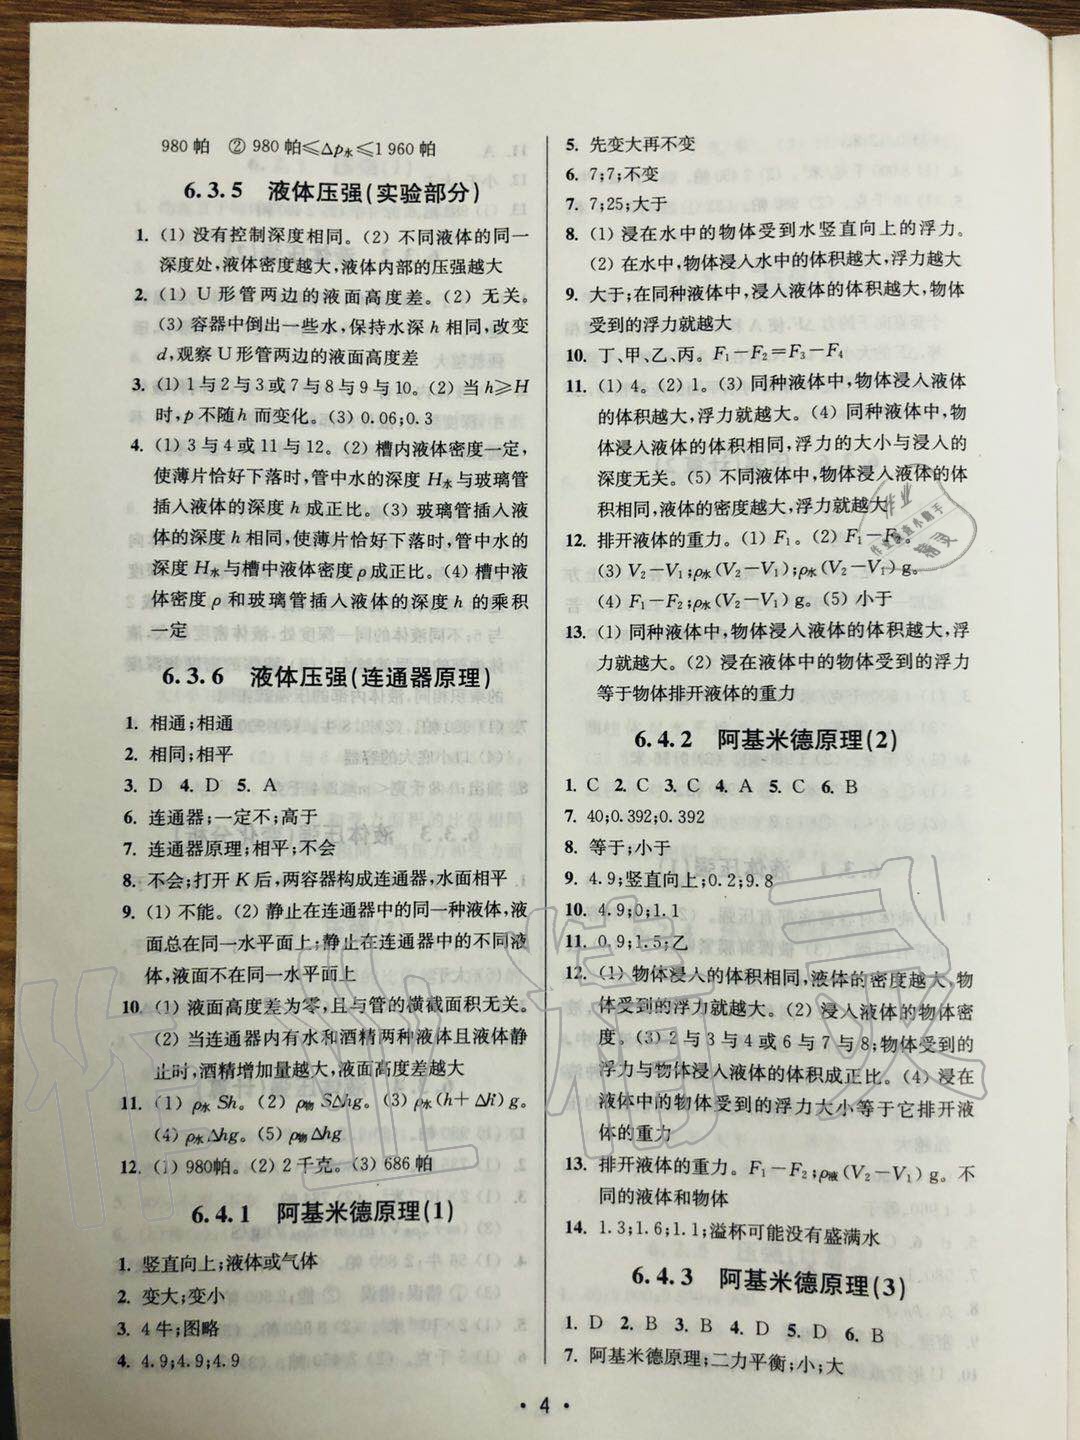 980 帕　② 980 帕≤Δp水≤1 960 帕
6.3.5　液体压强(实验部分)
1. (1) 没有控制深度相同。(2) 不同液体的同一
深度处,液体密度越大,液体内部的压强越大
2. (1) U 形管两边的液面高度差。(2) 无关。
(3) 容器中倒出一些水,保持水深 h 相同,改变
d,观察 U 形管两边的液面高度差
3. (1) 1 与 2 与 3 或 7 与 8 与 9 与 10。(2) 当 h≥H
时,p 不随 h 而变化。(3) 0.06;0.3
4. (1) 3 与 4 或 11 与 12。(2) 槽内液体密度一定,
使薄片恰好下落时,管中水的深度 H水与玻璃管
插入液体的深度 h 成正比。(3) 玻璃管插入液
体的深度 h 相同,使薄片恰好下落时,管中水的
深度 H水与槽中液体密度 ρ 成正比。(4) 槽中液
体密度 ρ 和玻璃管插入液体的深度 h 的乘积
一定
6.3.6　液体压强(连通器原理)
1. 相通;相通
2. 相同;相平
3. D　4. D　5. A
6. 连通器;一定不;高于
7. 连通器原理;相平;不会
8. 不会;打开 K 后,两容器构成连通器,水面相平
9. (1) 不能。(2) 静止在连通器中的同一种液体,液
面总在同一水平面上;静止在连通器中的不同液
体,液面不在同一水平面上
10. (1) 液面高度差为零,且与管的横截面积无关。
(2) 当连通器内有水和酒精两种液体且液体静
止时,酒精增加量越大,液面高度差越大
11. (1) ρ水 Sh。(2) ρ物 SΔhg。(3) ρ水(h+Δh)g。
(4) ρ水Δhg。(5) ρ物Δhg
12. (1) 980帕。(2) 2 千克。(3) 686 帕
6.4.1　阿基米德原理(1)
1. 竖直向上;液体或气体
2. 变大;变小
3. 4 牛;图略
4. 4.9;4.9;4.9
5. 先变大再不变
6. 7;7;不变
7. 7;25;大于
8. (1) 浸在水中的物体受到水竖直向上的浮力。
(2) 在水中,物体浸入水中的体积越大,浮力越大
9. 大于;在同种液体中,浸入液体的体积越大,物体
受到的浮力就越大
10. 丁、甲、乙、丙。F₁−F₂=F₃−F₄
11. (1) 4。(2) 1。(3) 同种液体中,物体浸入液体
的体积越大,浮力就越大。(4) 同种液体中,物
体浸入液体的体积相同,浮力的大小与浸入的
深度无关。(5) 不同液体中,物体浸入液体的体
积相同,液体的密度越大,浮力就越大
12. 排开液体的重力。(1) F₁。(2) F₁−F₂。
(3) V₂−V₁;ρ水(V₂−V₁);ρ水(V₂−V₁)g。
(4) F₁−F₂;ρ水(V₂−V₁)g。(5) 小于
13. (1) 同种液体中,物体浸入液体的体积越大,浮
力就越大。(2) 浸在液体中的物体受到的浮力
等于物体排开液体的重力
6.4.2　阿基米德原理(2)
1. C　2. C　3. C　4. A　5. C　6. B
7. 40;0.392;0.392
8. 等于;小于
9. 4.9;竖直向上;0.2;9.8
10. 4.9;0;1.1
11. 0.9;1.5;乙
12. (1) 物体浸入的体积相同,液体的密度越大,物
体受到的浮力就越大。(2) 浸入液体的物体密
度。(3) 2 与 3 与 4 或 6 与 7 与 8;物体受到的
浮力与物体浸入液体的体积成正比。(4) 浸在
液体中的物体受到的浮力大小等于它排开液
体的重力
13. 排开液体的重力。F₁−F₂;ρ液(V₂−V₁)g。不
同的液体和物体
14. 1.3;1.6;1.1;溢杯可能没有盛满水
6.4.3　阿基米德原理(3)
1. D　2. B　3. D　4. D　5. D　6. B
7. 阿基米德原理;二力平衡;小;大
· 4 ·
作业精灵